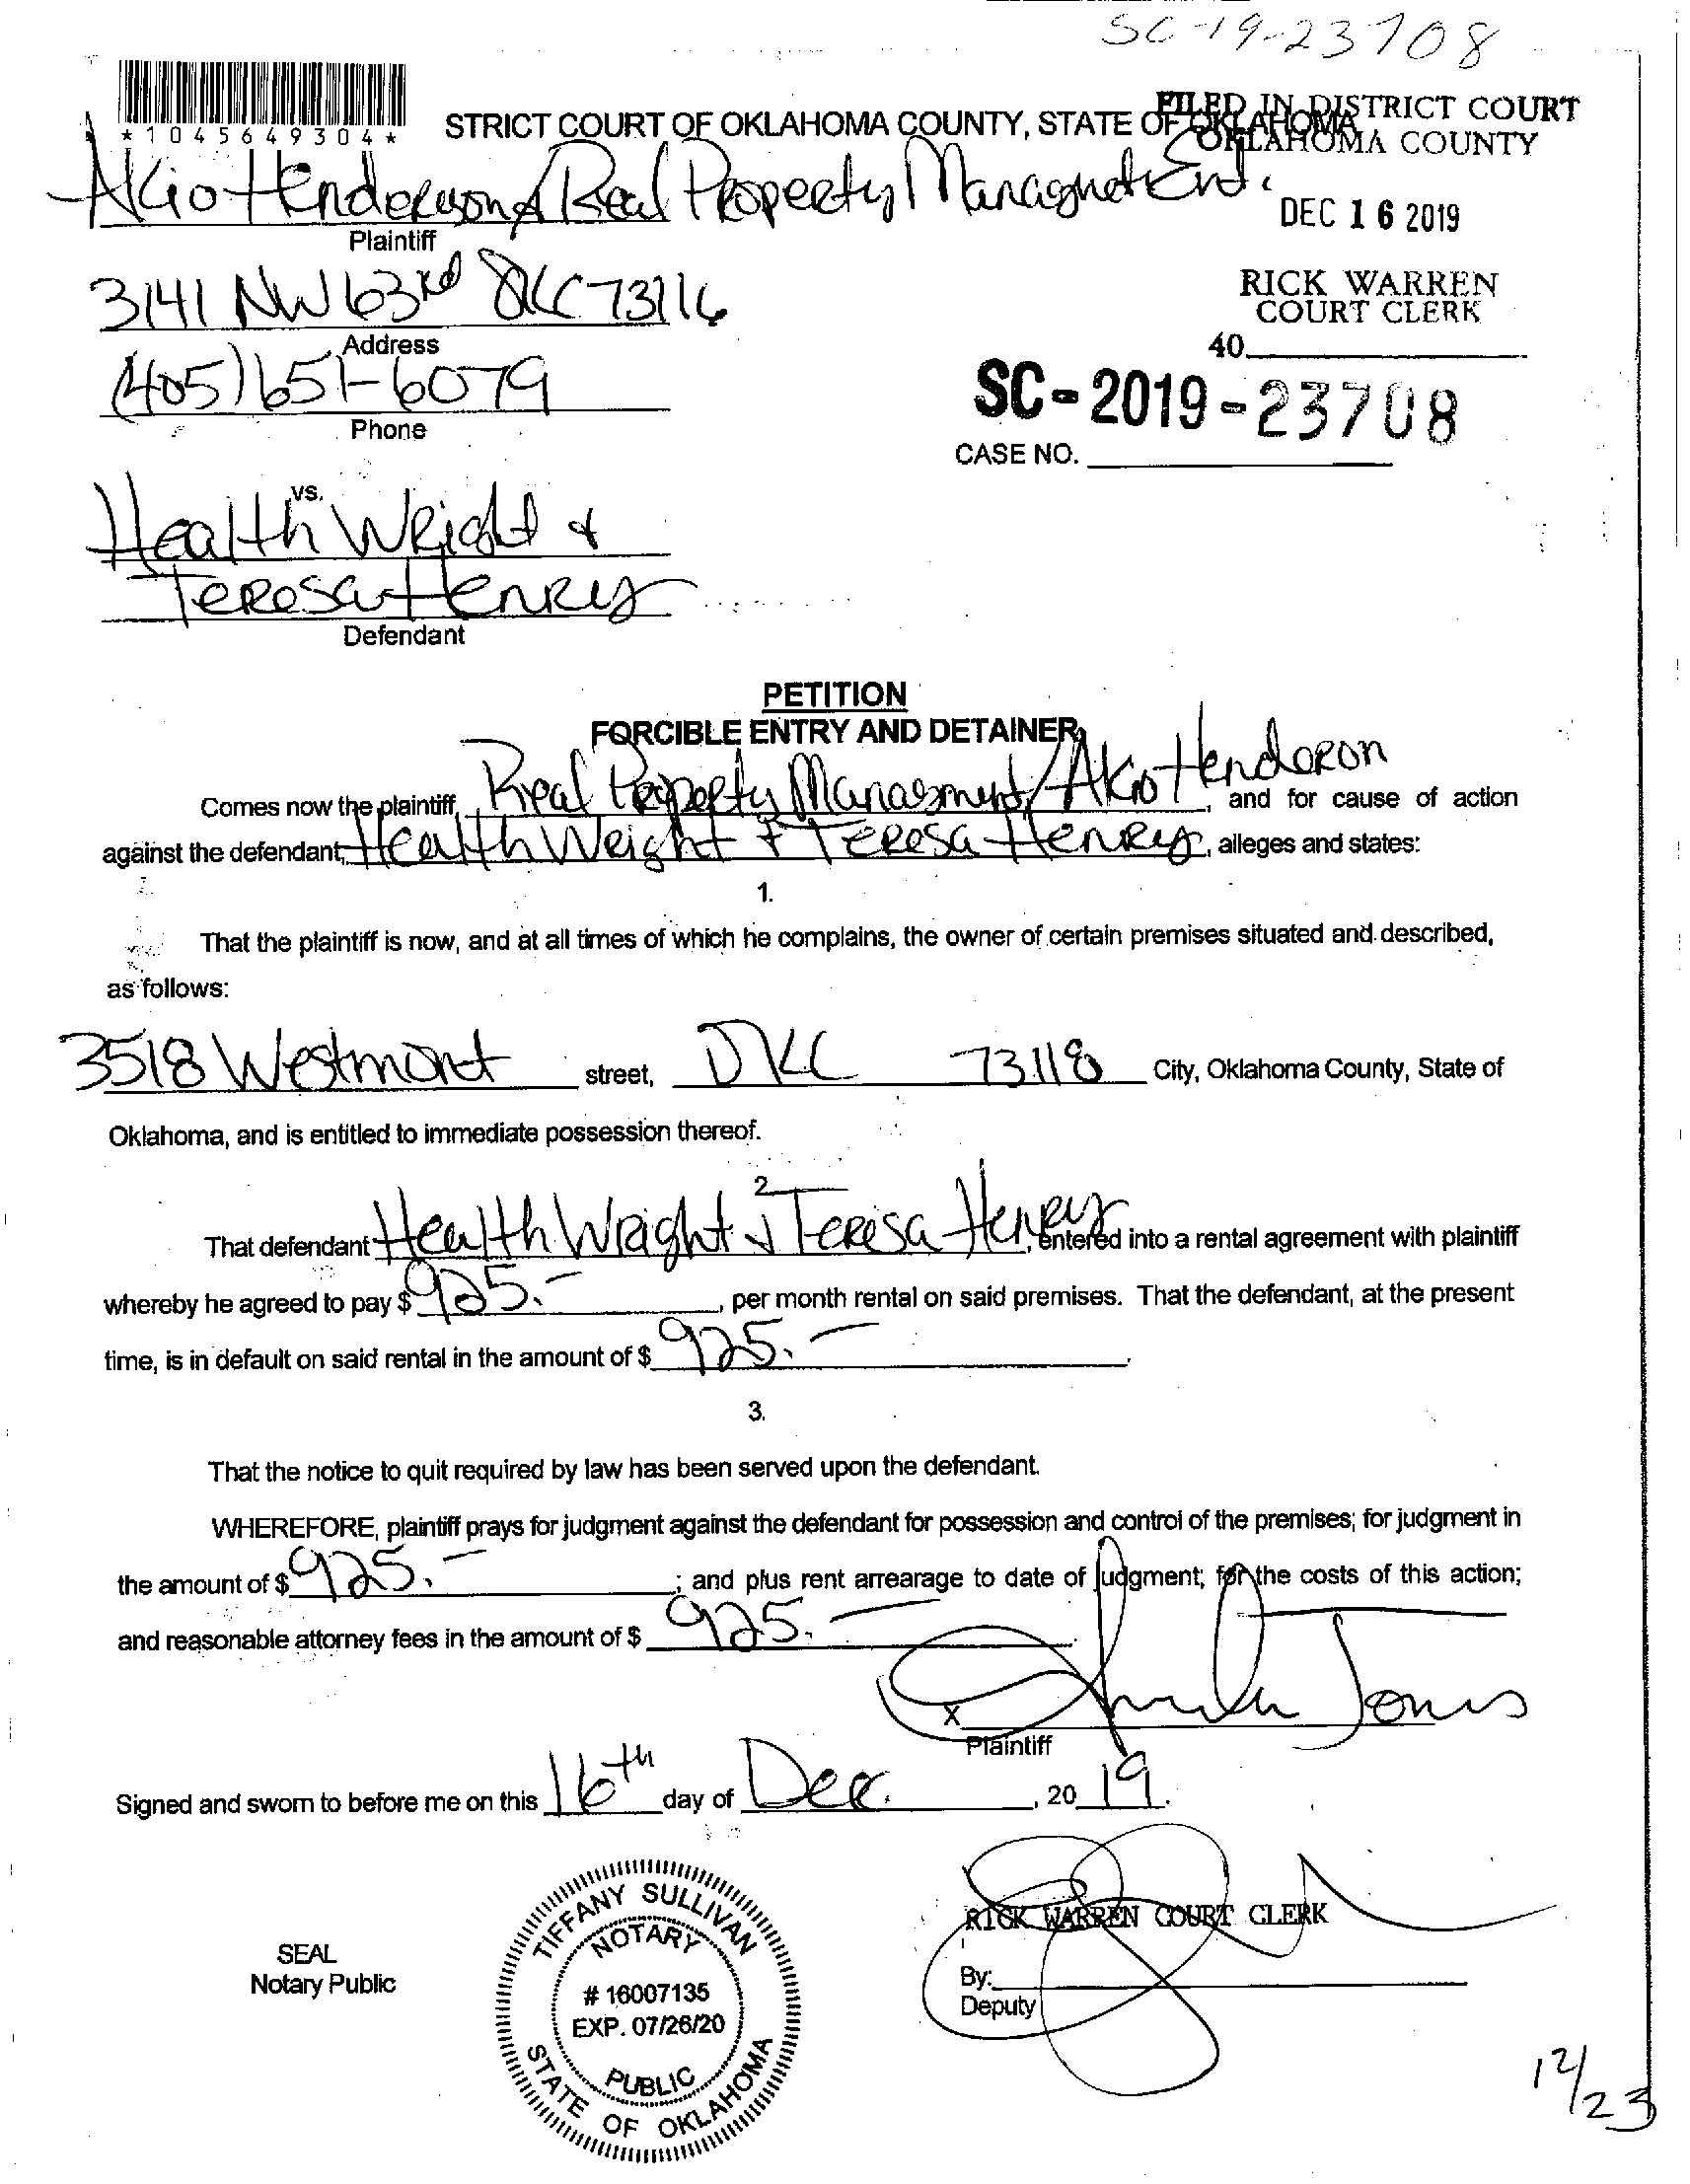 SC-19-23708
*1045649304*
STRICT COURT OF OKLAHOMA COUNTY, STATE OF OKLAHOMA
FILED IN DISTRICT COURT
OKLAHOMA COUNTY
Akio Henderson / Real Property Managmet Ent.
Plaintiff
DEC 16 2019
3141 NW 63rd OKC 73116
Address
RICK WARREN
COURT CLERK
40
(405) 651-6079
Phone
SC-2019-23708
CASE NO.
vs.
Health Wright &
Teresa Henry
Defendant
PETITION
FORCIBLE ENTRY AND DETAINER
Comes now the plaintiff, Real Property Managment/Akio Henderon, and for cause of action
against the defendant, Health Wright & Teresa Henry, alleges and states:
1.
That the plaintiff is now, and at all times of which he complains, the owner of certain premises situated and described,
as follows:
3518 Westmont street, OKC 73118 City, Oklahoma County, State of
Oklahoma, and is entitled to immediate possession thereof.
2.
That defendant Health Wright & Teresa Henry, entered into a rental agreement with plaintiff
whereby he agreed to pay $ 925.- , per month rental on said premises. That the defendant, at the present
time, is in default on said rental in the amount of $ 925.- .
3.
That the notice to quit required by law has been served upon the defendant.
WHEREFORE, plaintiff prays for judgment against the defendant for possession and control of the premises; for judgment in
the amount of $ 925.- ; and plus rent arrearage to date of judgment; for the costs of this action;
and reasonable attorney fees in the amount of $ 925.- .
X Jones
Plaintiff
Signed and sworn to before me on this 16th day of Dec. , 20 19.
TIFFANY SULLIVAN
NOTARY
# 16007135
EXP. 07/26/20
PUBLIC
STATE OF OKLAHOMA
SEAL
Notary Public
RICK WARREN COURT CLERK
By:
Deputy
12/23